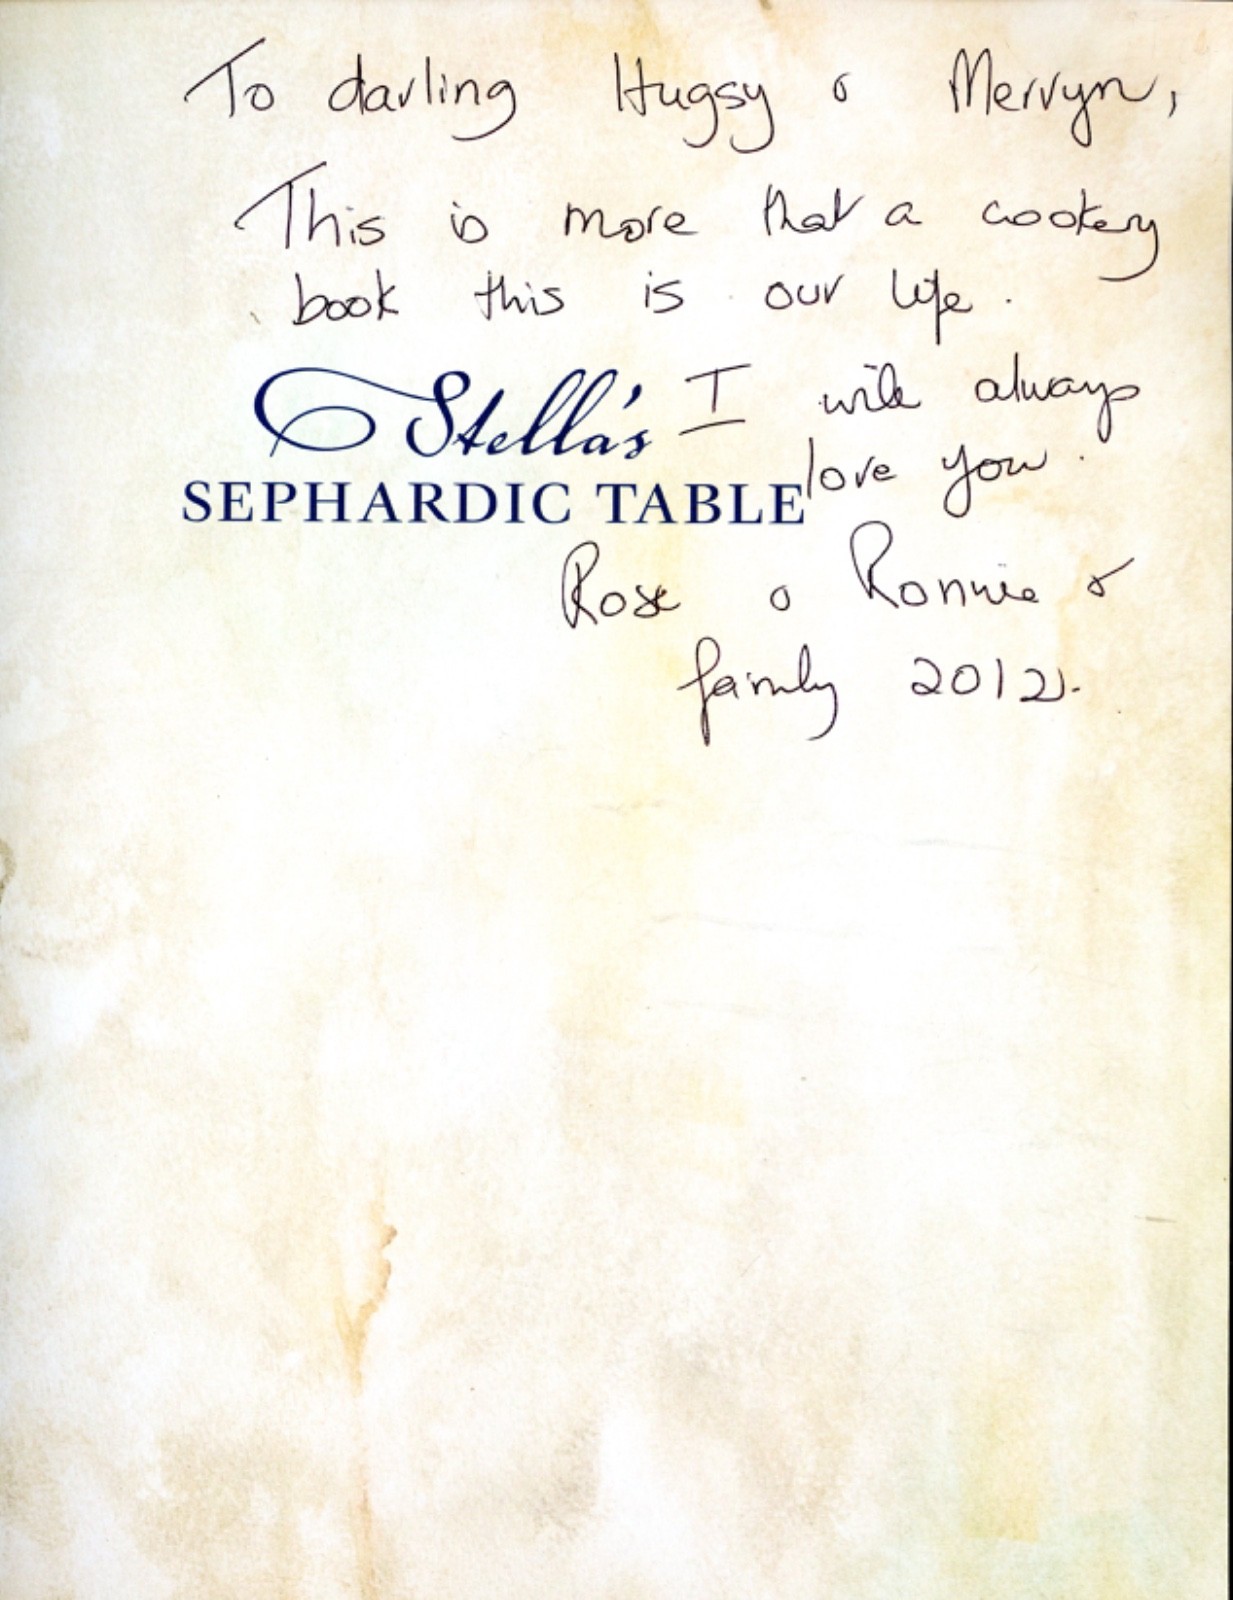 To darling Hugsy & Mervyn,
This is more that a cookery
book this is our life.
Stella's
SEPHARDIC TABLE
I will always
love you.
Rose & Ronnie &
family 2012.